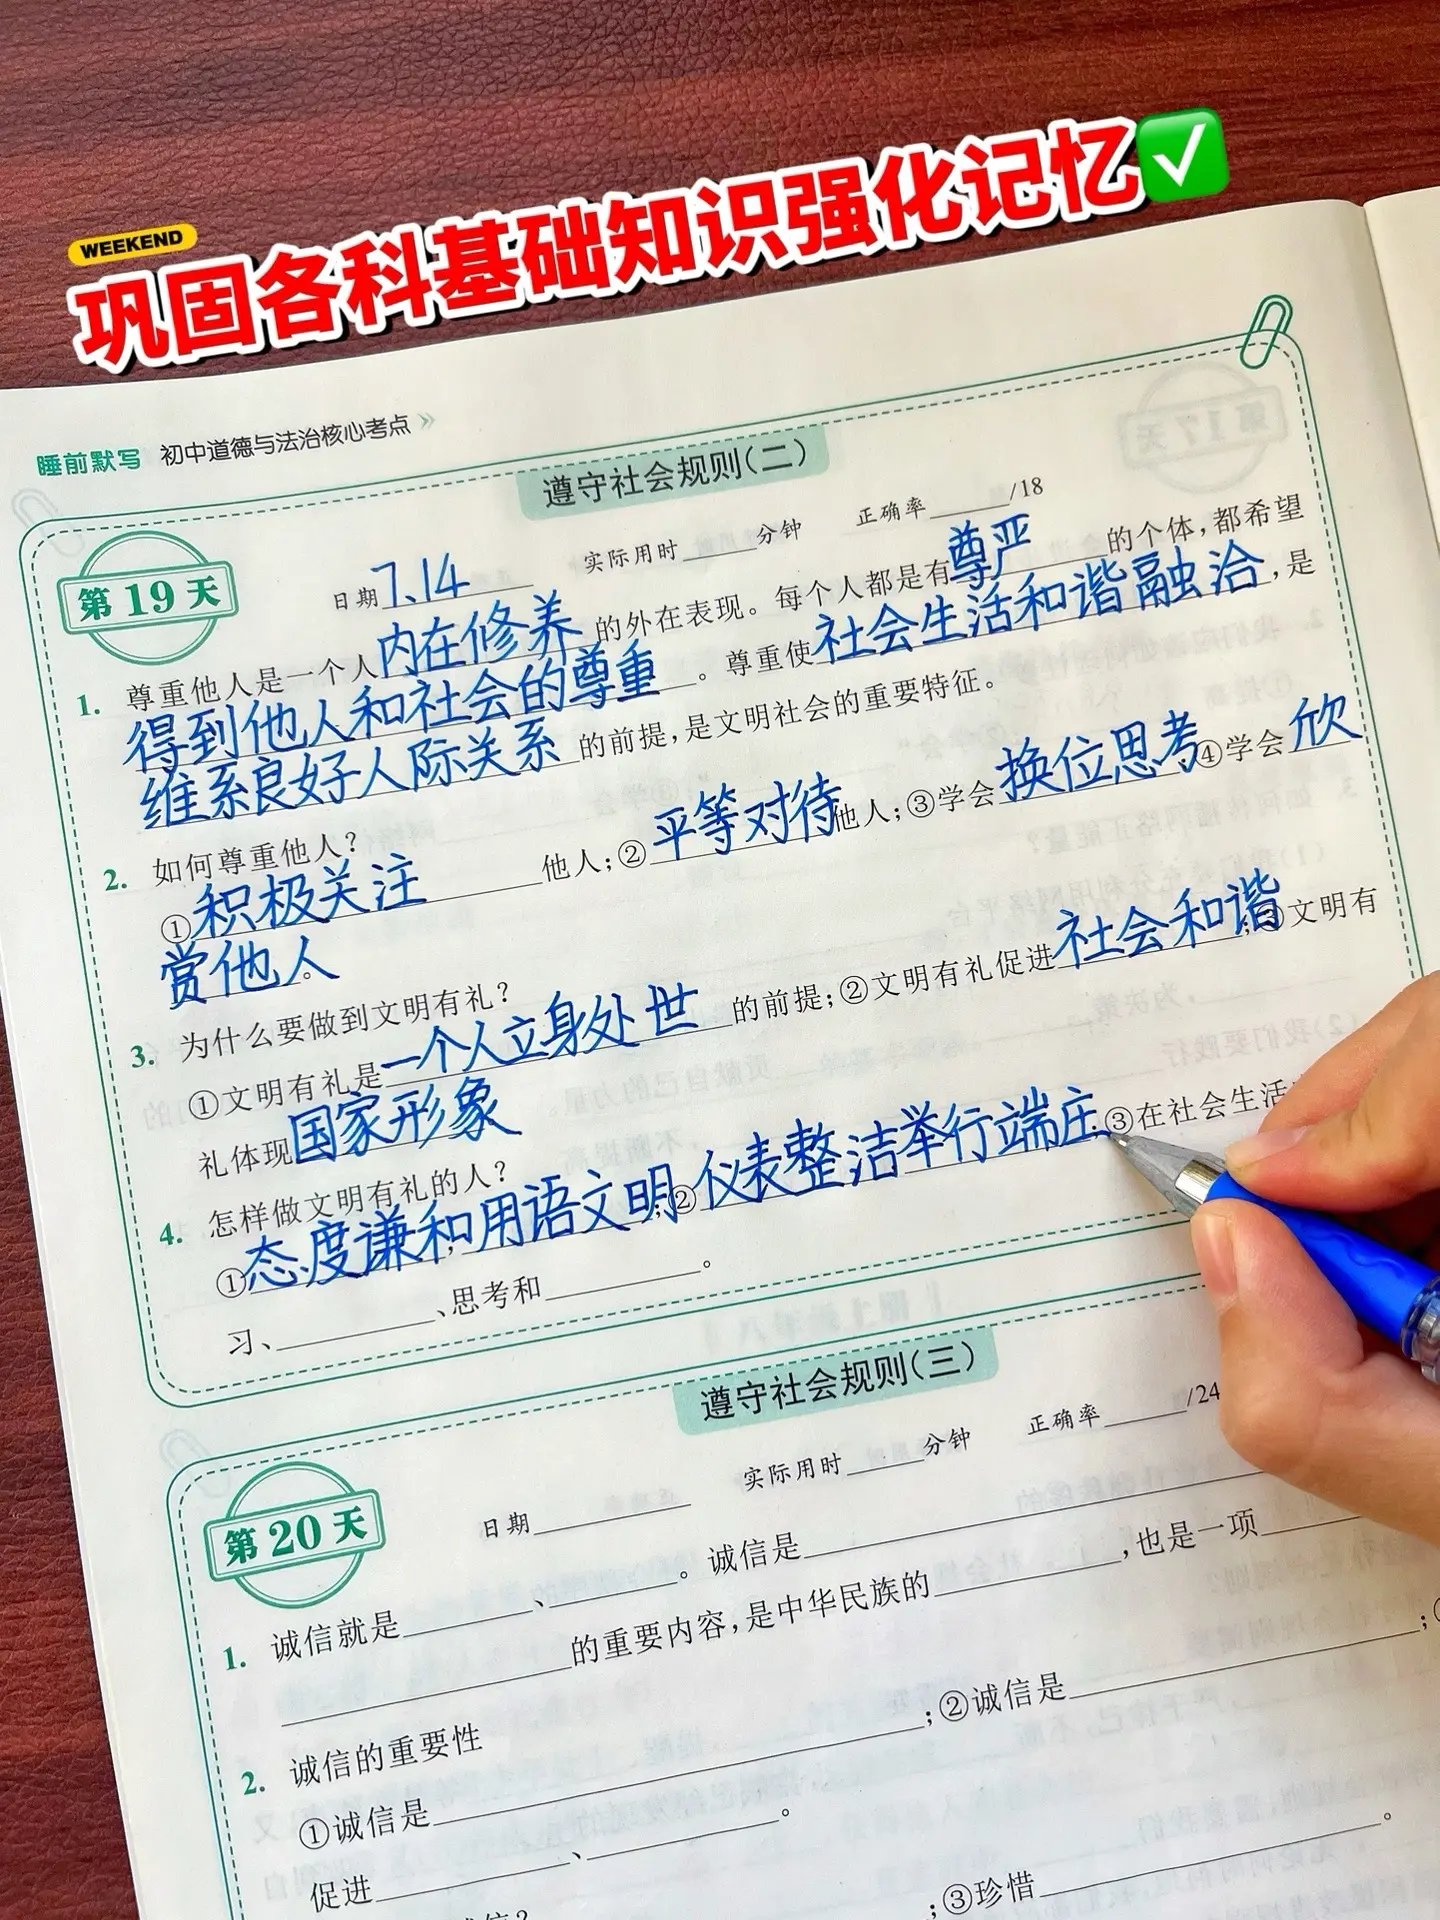 WEEKEND
巩固各科基础知识强化记忆
睡前默写 初中道德与法治核心考点
遵守社会规则(二)
第19天
日期7.14 实际用时 分钟 正确率 /18
1. 尊重他人是一个人内在修养的外在表现。每个人都是有尊严的个体,都希望
得到他人和社会的尊重。尊重使社会生活和谐融洽,是
维系良好人际关系的前提,是文明社会的重要特征。
2. 如何尊重他人?
①积极关注他人;②平等对待他人;③学会换位思考④学会欣
赏他人。
3. 为什么要做到文明有礼?
①文明有礼是一个人立身处世的前提;②文明有礼促进社会和谐;③文明有
礼体现国家形象
4. 怎样做文明有礼的人?
①态度谦和,用语文明;②仪表整洁举行端庄③在社会生活
习、 、思考和 。
遵守社会规则(三)
第20天
日期 实际用时 分钟 正确率 /24
1. 诚信就是 、 。诚信是
的重要内容,是中华民族的 ,也是一项
2. 诚信的重要性
①诚信是 ;②诚信是 ;
促进 、 。
;③珍惜 。